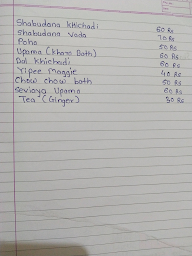 Shabudana Khichadi 60 Rs
Shabudana Vada 70 Rs
Poha 50 Rs
Upama (Khara Bath) 50 Rs
Dal Khichadi 60 Rs
Yipee Maggie 40 Rs
Chow chow bath 50 Rs
Seviaya Upama 60 Rs
Tea (Ginger) 30 Rs